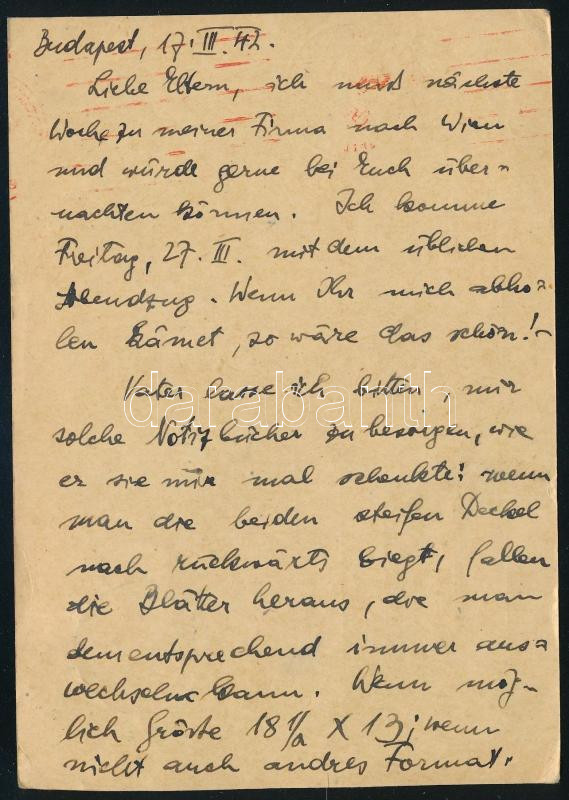 Budapest, 17. III. 42.
Liebe Eltern, ich muß nächste
Woche zu meiner Firma nach Wien
und würde gerne bei Euch über=
nachten können. Ich komme
Freitag, 27. III. mit dem üblichen
Abendzug. Wenn Ihr mich abho=
len kämet, so wäre das schön!–
Vater lasse ich bitten, mir
darabanth
solche Notizbücher zu besorgen, wie
er sie mir mal schenkte: wenn
man die beiden steifen Deckel
nach rückwärts biegt, fallen
die Blätter heraus, die man
dementsprechend immer aus=
wechseln kann. Wenn mög=
lich Größe 18 1/2 X 13; wenn
nicht auch andres Format.